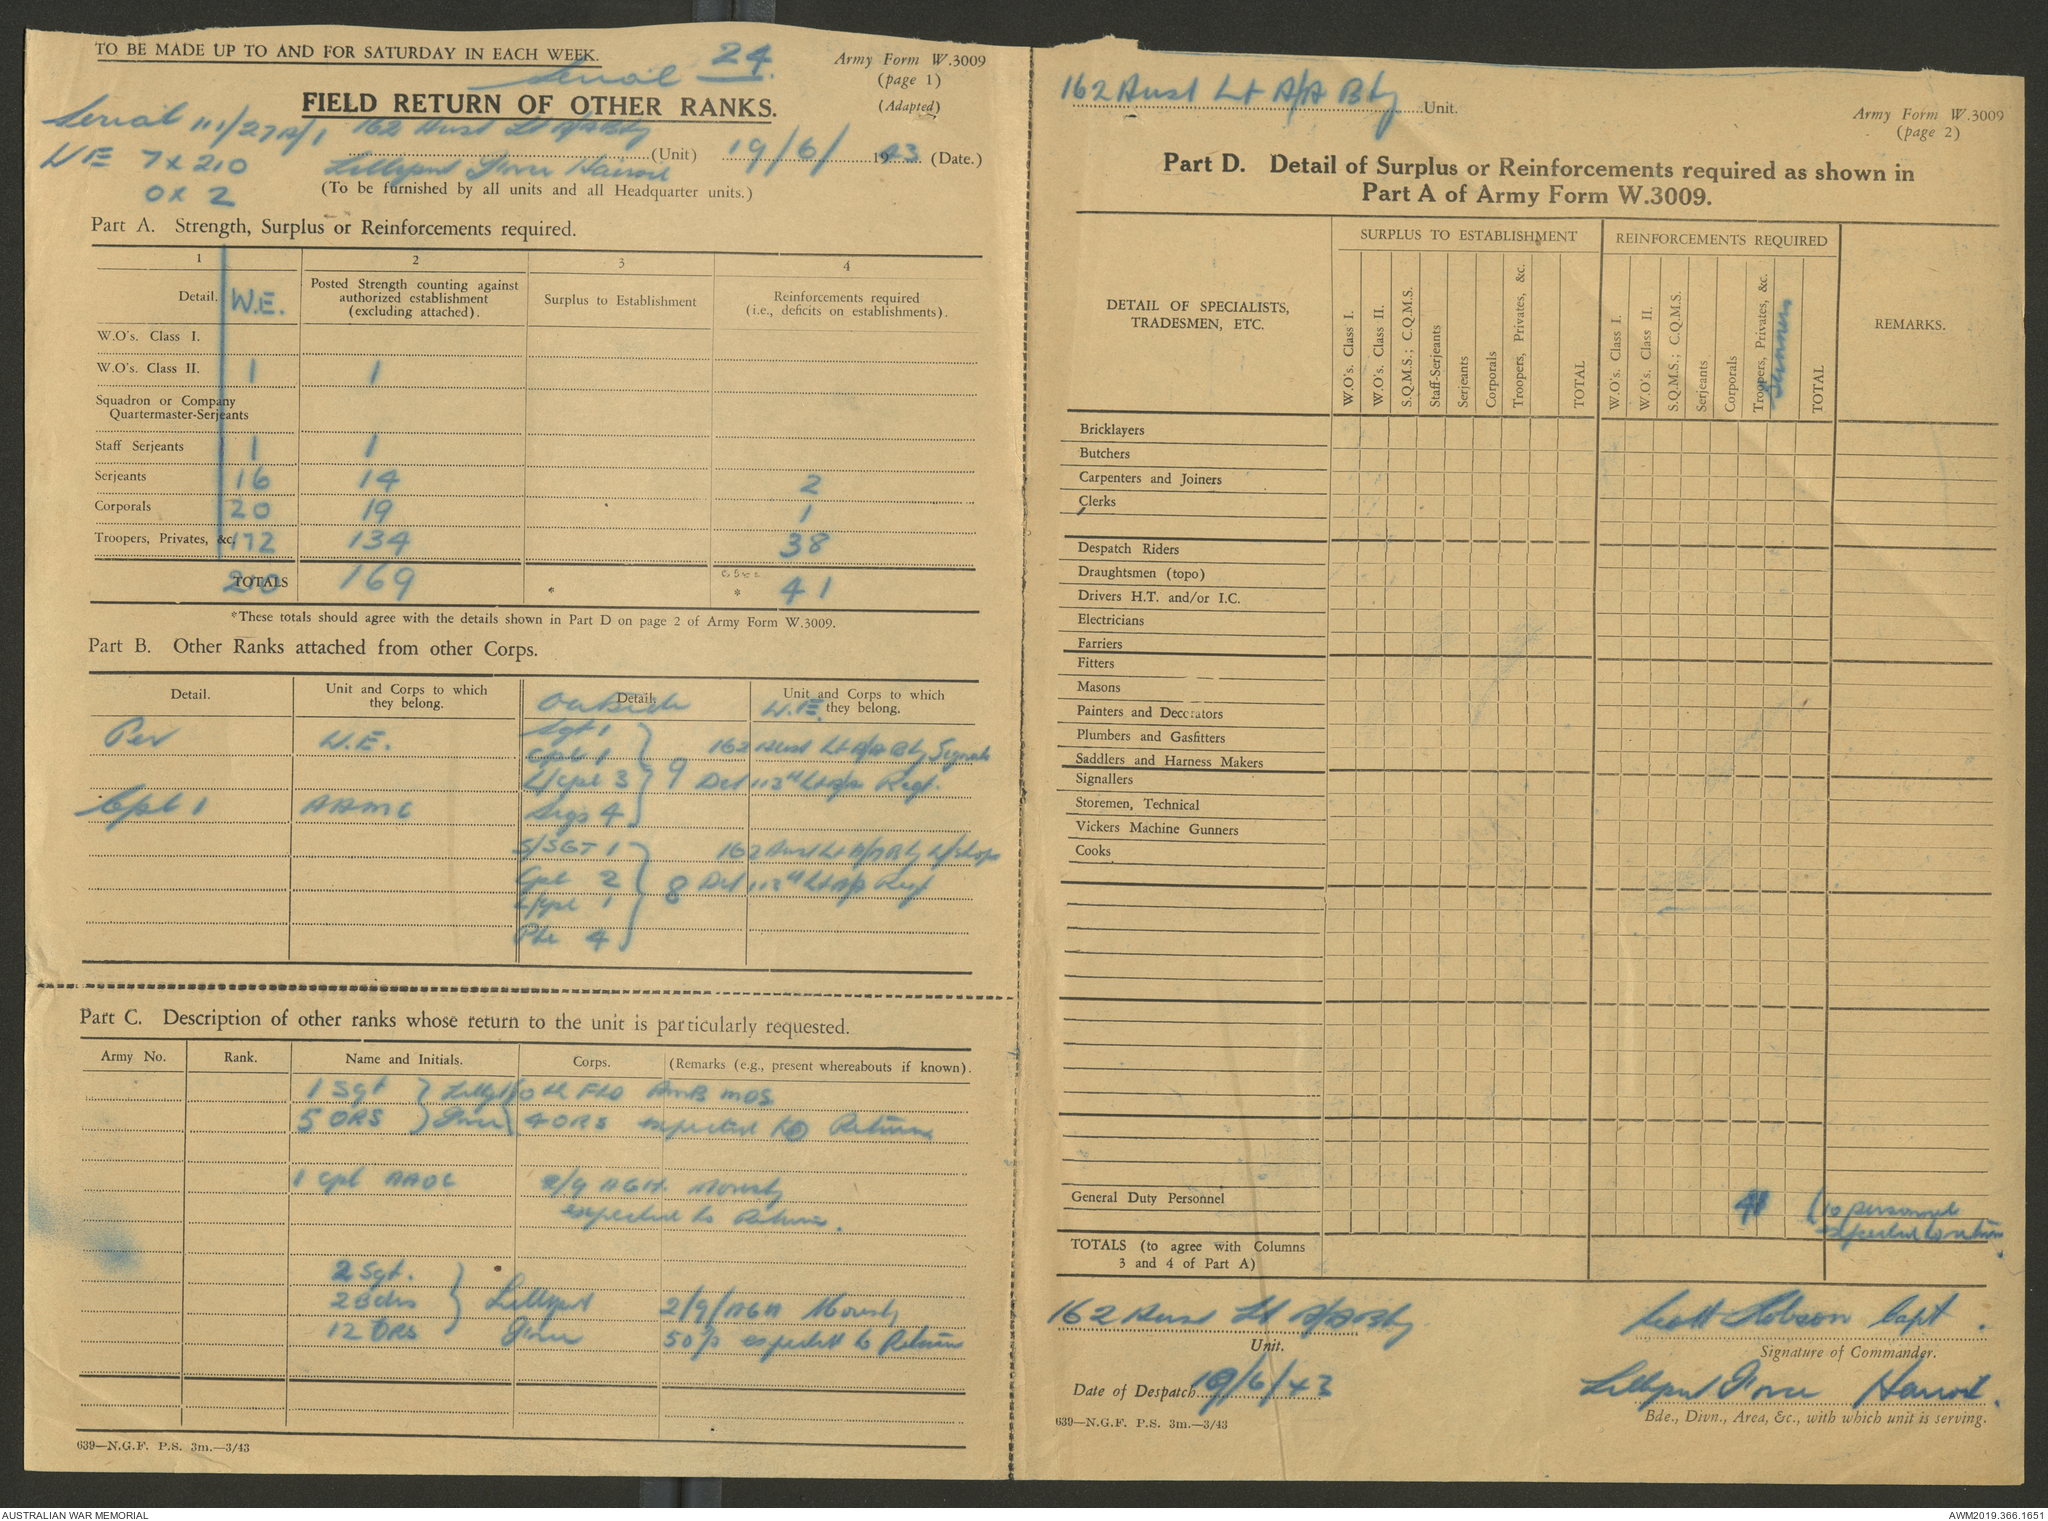 TO BE MADE UP TO AND FOR SATURDAY IN EACH WEEK.
Serial 24.
Army Form W.3009
(page 1)
(Adapted)
FIELD RETURN OF OTHER RANKS.
Serial 111/27A/1
162 Aust Lt A/A Bty (Unit) 19/6/1943 (Date.)
WE 7 x 210
0 x 2
Lilliput Force
(To be furnished by all units and all Headquarter units.)
Part A. Strength, Surplus or Reinforcements required.
1 2 3 4
Detail. W.E. Posted Strength counting against authorized establishment (excluding attached). Surplus to Establishment Reinforcements required (i.e., deficits on establishments).
W.O's. Class I.
W.O's. Class II. 1 1
Squadron or Company Quartermaster-Serjeants
Staff Serjeants 1 1
Serjeants 16 14 2
Corporals 20 19 1
Troopers, Privates, &c. 172 134 38
TOTALS 210 169 * * 41
*These totals should agree with the details shown in Part D on page 2 of Army Form W.3009.
Part B. Other Ranks attached from other Corps.
Detail. Unit and Corps to which they belong. Detail. Unit and Corps to which they belong.
Outside W.E.
Per W.E.
Sgt 1
Cpl 1
L/Cpl 3
Sigs 4
9
162 Aust Lt A/A Bty Signals
Det 113th Lt A/A Regt.
Cpl 1 AAMC
S/SGT 1
Cpl 2
L/Cpl 1
Pte 4
8
162 Aust Lt A/A Bty W/shops
Det 113th Lt A/A Regt
Part C. Description of other ranks whose return to the unit is particularly requested.
Army No. Rank. Name and Initials. Corps. (Remarks (e.g., present whereabouts if known).
1 Sgt
5 ORS
Force
Fld AMB MDS
4 ORS expected to Return
1 Cpl AAOC 2/9 AGH Moresby
expected to Return.
2 Sgt.
2 Bdrs
12 ORS
Lilliput
Force
2/9/AGH Moresby
50% expected to Return
639—N.G.F. P.S. 3m.—3/43
162 Aust Lt A/A Bty Unit.
Army Form W.3009
(page 2)
Part D. Detail of Surplus or Reinforcements required as shown in
Part A of Army Form W.3009.
DETAIL OF SPECIALISTS, TRADESMEN, ETC.
SURPLUS TO ESTABLISHMENT
REINFORCEMENTS REQUIRED
REMARKS.
W.O's. Class I.
W.O's. Class II.
S.Q.M.S.; C.Q.M.S.
Staff-Serjeants
Serjeants
Corporals
Troopers, Privates, &c.
TOTAL
W.O's. Class I.
W.O's. Class II.
S.Q.M.S.; C.Q.M.S.
Serjeants
Corporals
Troopers, Privates, &c.
Gunners
TOTAL
Bricklayers
Butchers
Carpenters and Joiners
Clerks
Despatch Riders
Draughtsmen (topo)
Drivers H.T. and/or I.C.
Electricians
Farriers
Fitters
Masons
Painters and Decorators
Plumbers and Gasfitters
Saddlers and Harness Makers
Signallers
Storemen, Technical
Vickers Machine Gunners
Cooks
General Duty Personnel 41 (10 personnel
expected to return.
TOTALS (to agree with Columns
3 and 4 of Part A)
162 Aust Lt A/A Bty
Unit.
Scott Hobson Capt.
Signature of Commander.
Date of Despatch 19/6/43
Lilliput Force
Bde., Divn., Area, &c., with which unit is serving.
639—N.G.F. P.S. 3m.—3/43
AUSTRALIAN WAR MEMORIAL
AWM2019.366.1651